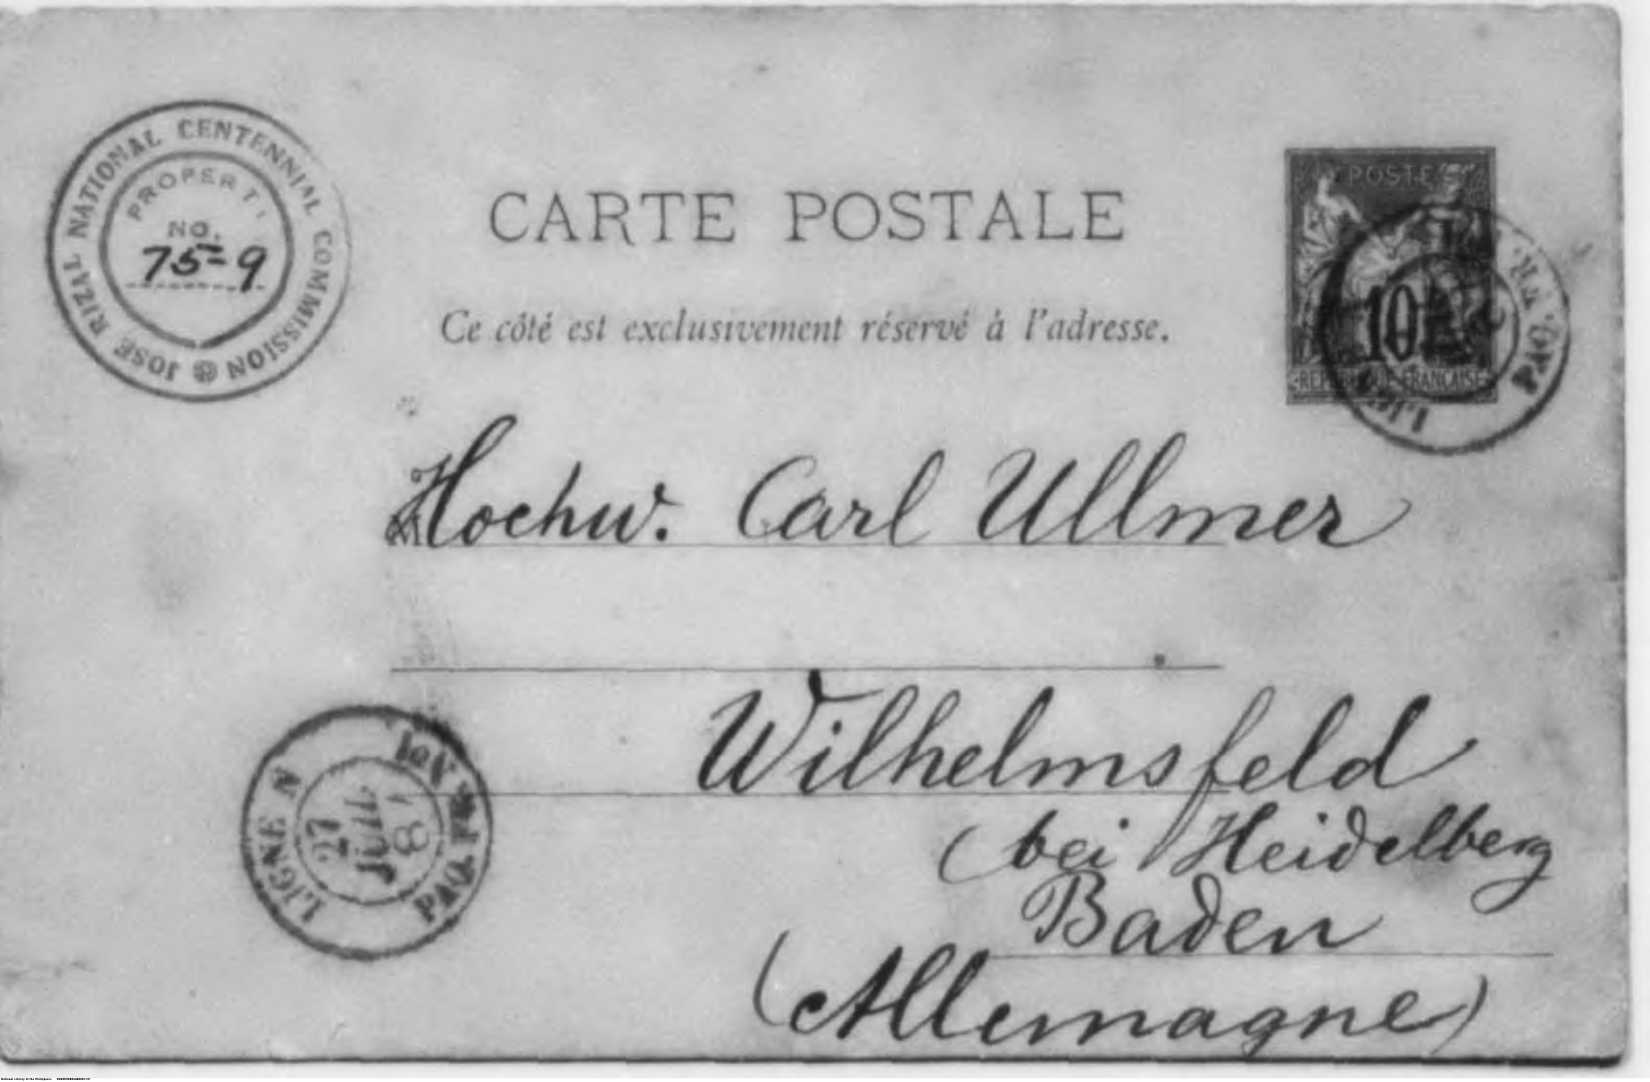 JOSE RIZAL NATIONAL CENTENNIAL COMMISSION
PROPERTY
NO.
75-9
CARTE POSTALE
Ce côté est exclusivement réservé à l'adresse.
POSTES
10
REPUBLIQUE FRANÇAISE
LIGNE
PAQ. FR.
Hochw. Carl Ullmer
Wilhelmsfeld
(bei Heidelberg
Baden
(Allemagne)
LIGNE N PAQ. FR. No 1
27
JUIL
87